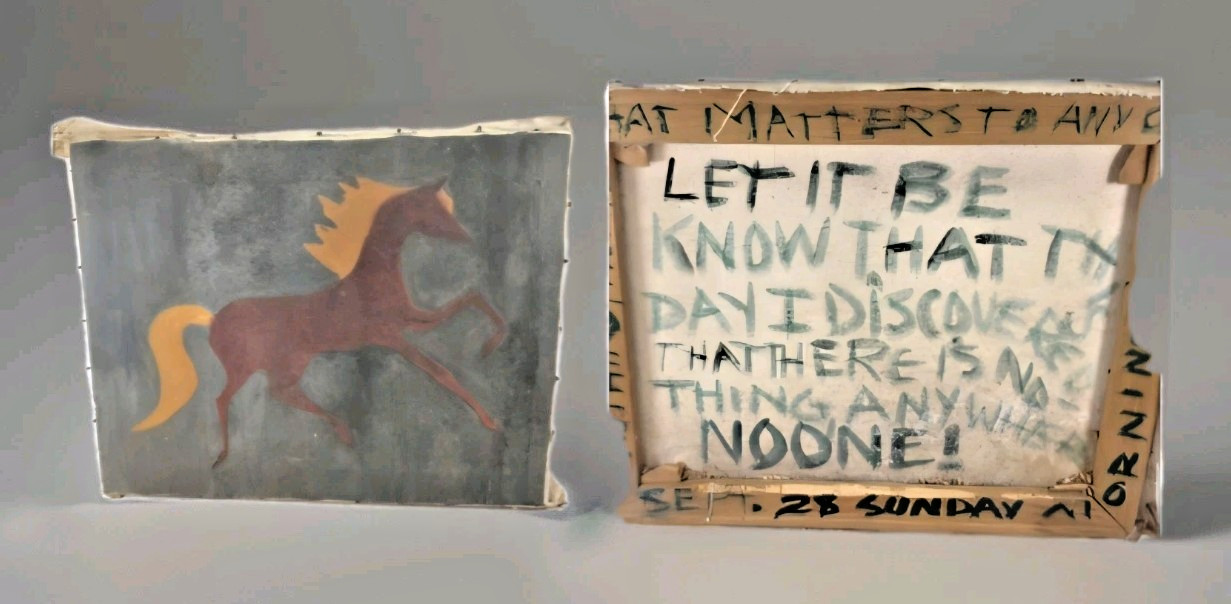 AT MATTERS TO ANY
LET IT BE
KNOW THAT
DAY I DISCOVE
THAT THERE IS NO
THING ANYWH
NOONE!
SEPT. 28 SUNDAY